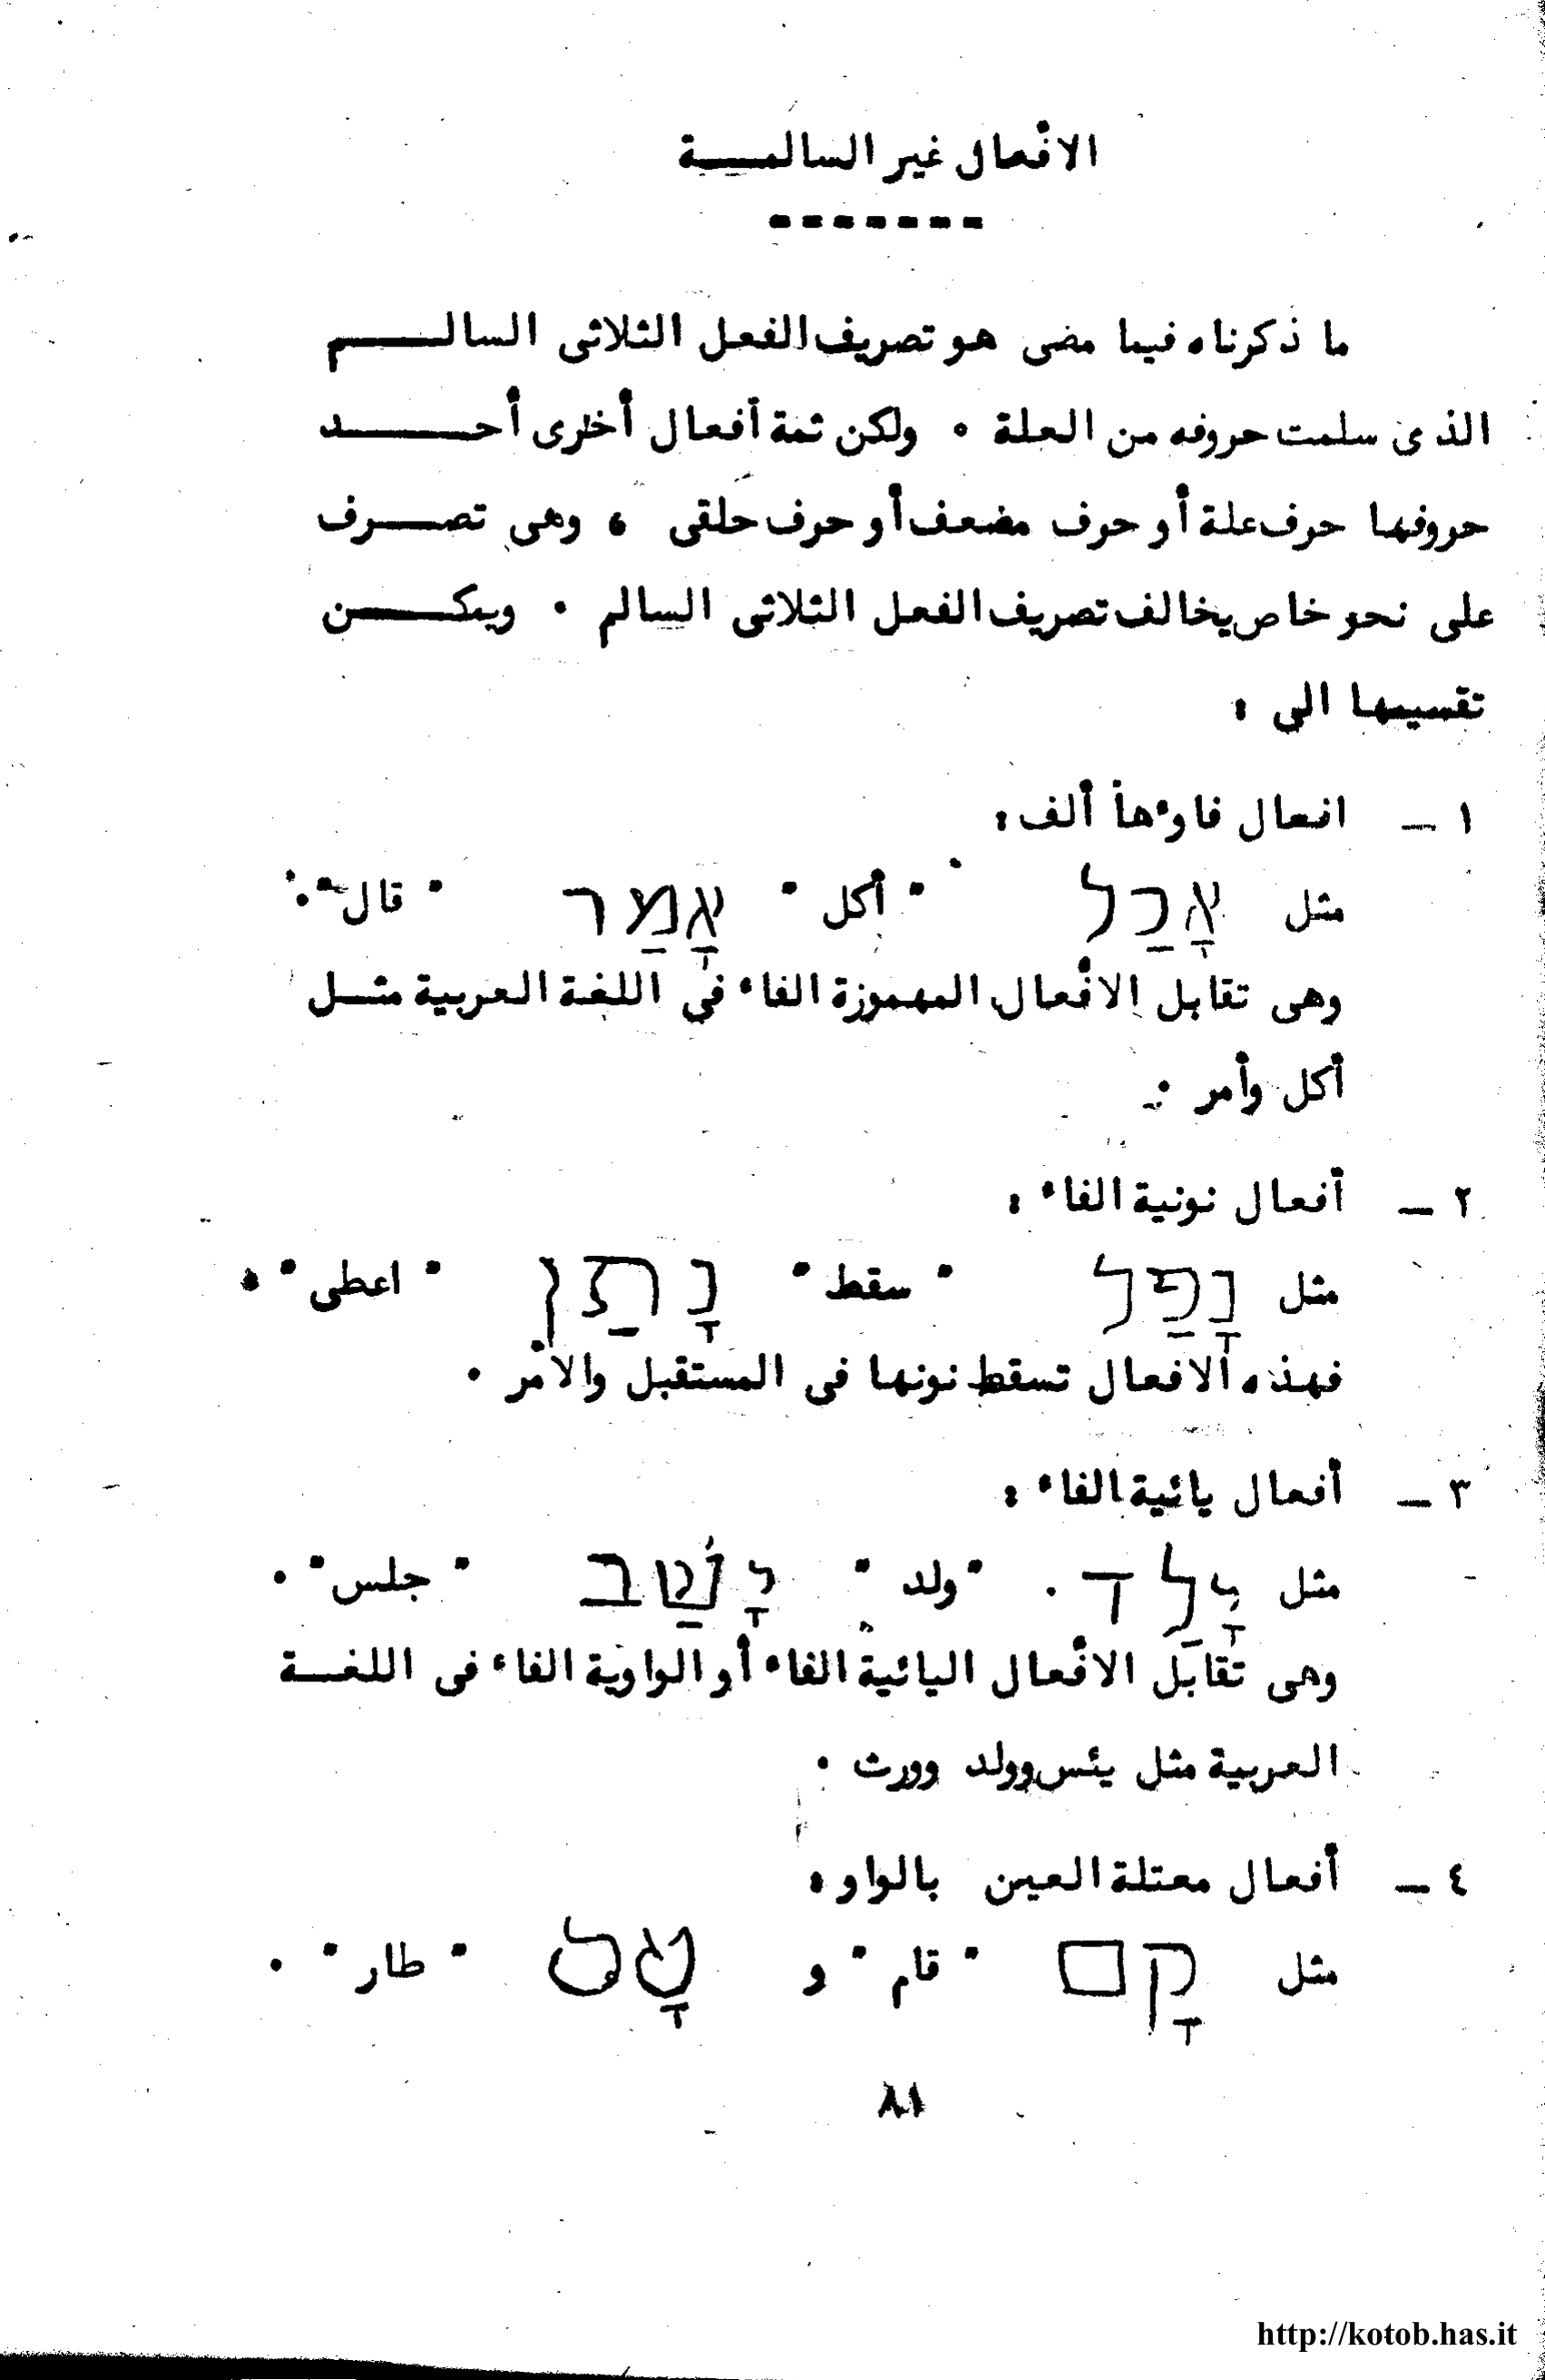 الافعال غير السالمة
ما ذكرناه فيما مضى هو تصريف الفعل الثلاثى السالم
الذى سلمت حروفه من العلة . ولكن ثمة أفعال أخرى أحد
حروفها حرف علة أو حرف مضعف أو حرف حلقى ، وهى تصرف
على نحو خاص يخالف تصريف الفعل الثلاثى السالم . ويمكن
تقسيمها الى :
١ – افعال فاوءها ألف :
مثل אָכַל " أكل " אָמַר " قال " .
وهى تقابل الافعال المهموزة الفاء فى اللغة العربية مثل
أكل وأمر .
٢ – أفعال نونية الفاء :
مثل נָפַל " سقط " נָתַן " اعطى " .
فهذه الافعال تسقط نونها فى المستقبل والامر .
٣ – أفعال يائية الفاء :
مثل יָלַד . " ولد " יָשַׁב " جلس " .
وهى تقابل الافعال اليائية الفاء أو الواوية الفاء فى اللغة
العربية مثل يئس وولد وورث .
٤ – أفعال معتلة العين بالواو :
مثل קָם " قام " و " طار " .
٨١
http://kotob.has.it